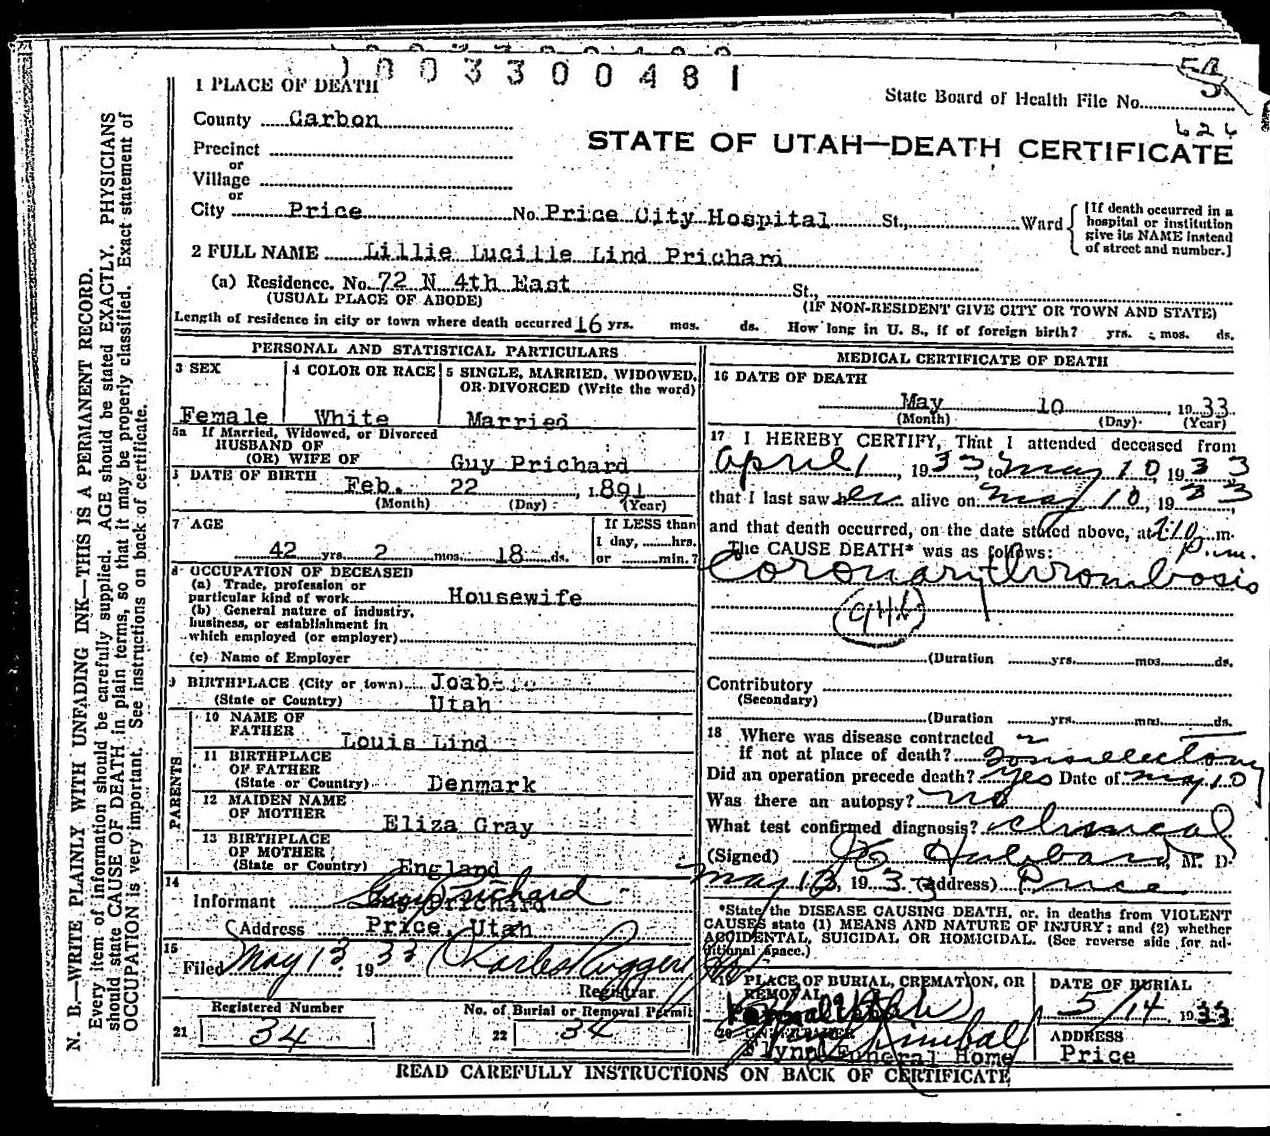 1003300481
1 PLACE OF DEATH
State Board of Health File No.
626
County Carbon
STATE OF UTAH—DEATH CERTIFICATE
Precinct
or
Village
or
City Price No. Price City Hospital St., Ward
[If death occurred in a
hospital or institution
give its NAME instead
of street and number.]
2 FULL NAME Lillie Lucille Lind Prichard
(a) Residence. No. 72 N 4th East St.,
(USUAL PLACE OF ABODE) (IF NON-RESIDENT GIVE CITY OR TOWN AND STATE)
Length of residence in city or town where death occurred 16 yrs. mos. ds. How long in U. S., if of foreign birth? yrs. mos. ds.
PERSONAL AND STATISTICAL PARTICULARS
3 SEX 4 COLOR OR RACE 5 SINGLE, MARRIED, WIDOWED,
OR DIVORCED (Write the word)
Female White Married
5a If Married, Widowed, or Divorced
HUSBAND OF
(OR) WIFE OF Guy Prichard
DATE OF BIRTH Feb. 22, 1891
(Month) (Day) (Year)
7 AGE If LESS than
1 day, hrs.
42 yrs. 2 mos. 18 ds. or min.?
8 OCCUPATION OF DECEASED
(a) Trade, profession or
particular kind of work Housewife
(b) General nature of industry,
business, or establishment in
which employed (or employer)
(c) Name of Employer
9 BIRTHPLACE (City or town) Joab
(State or Country) Utah
PARENTS
10 NAME OF
FATHER Louis Lind
11 BIRTHPLACE
OF FATHER
(State or Country) Denmark
12 MAIDEN NAME
OF MOTHER Eliza Gray
13 BIRTHPLACE
OF MOTHER
(State or Country) England
14
Informant Guy Prichard
Address Price, Utah
15
Filed May 13, 1933 Charles Ruggeri
Registrar
Registered Number No. of Burial or Removal Permit
21 34 22 34
MEDICAL CERTIFICATE OF DEATH
16 DATE OF DEATH
May 10, 1933
(Month) (Day) (Year)
17 I HEREBY CERTIFY, That I attended deceased from
April 1, 1933, to May 10, 1933
that I last saw her alive on May 10, 1933
and that death occurred, on the date stated above, at m.
p.m.
The CAUSE DEATH* was as follows:
Coronary thrombosis
94b
(Duration yrs. mos. ds.
Contributory
(Secondary)
(Duration yrs. mos. ds.
18 Where was disease contracted
if not at place of death? Tonsillectomy
Did an operation precede death? Yes Date of May 10
Was there an autopsy? no
What test confirmed diagnosis? Clinical
(Signed) Hubbard, M. D.
May 13, 1933 (Address) Price
*State the DISEASE CAUSING DEATH, or, in deaths from VIOLENT
CAUSES state (1) MEANS AND NATURE OF INJURY; and (2) whether
ACCIDENTAL, SUICIDAL OR HOMICIDAL. (See reverse side for ad-
ditional space.)
19 PLACE OF BURIAL, CREMATION, OR
REMOVAL
DATE OF BURIAL
5/14, 1933
20 UNDERTAKER
Flynn Funeral Home
ADDRESS
Price
READ CAREFULLY INSTRUCTIONS ON BACK OF CERTIFICATE
N. B.—WRITE PLAINLY WITH UNFADING INK—THIS IS A PERMANENT RECORD.
Every item of information should be carefully supplied. AGE should be stated EXACTLY. PHYSICIANS
should state CAUSE OF DEATH in plain terms, so that it may be properly classified. Exact statement of
OCCUPATION is very important. See instructions on back of certificate.